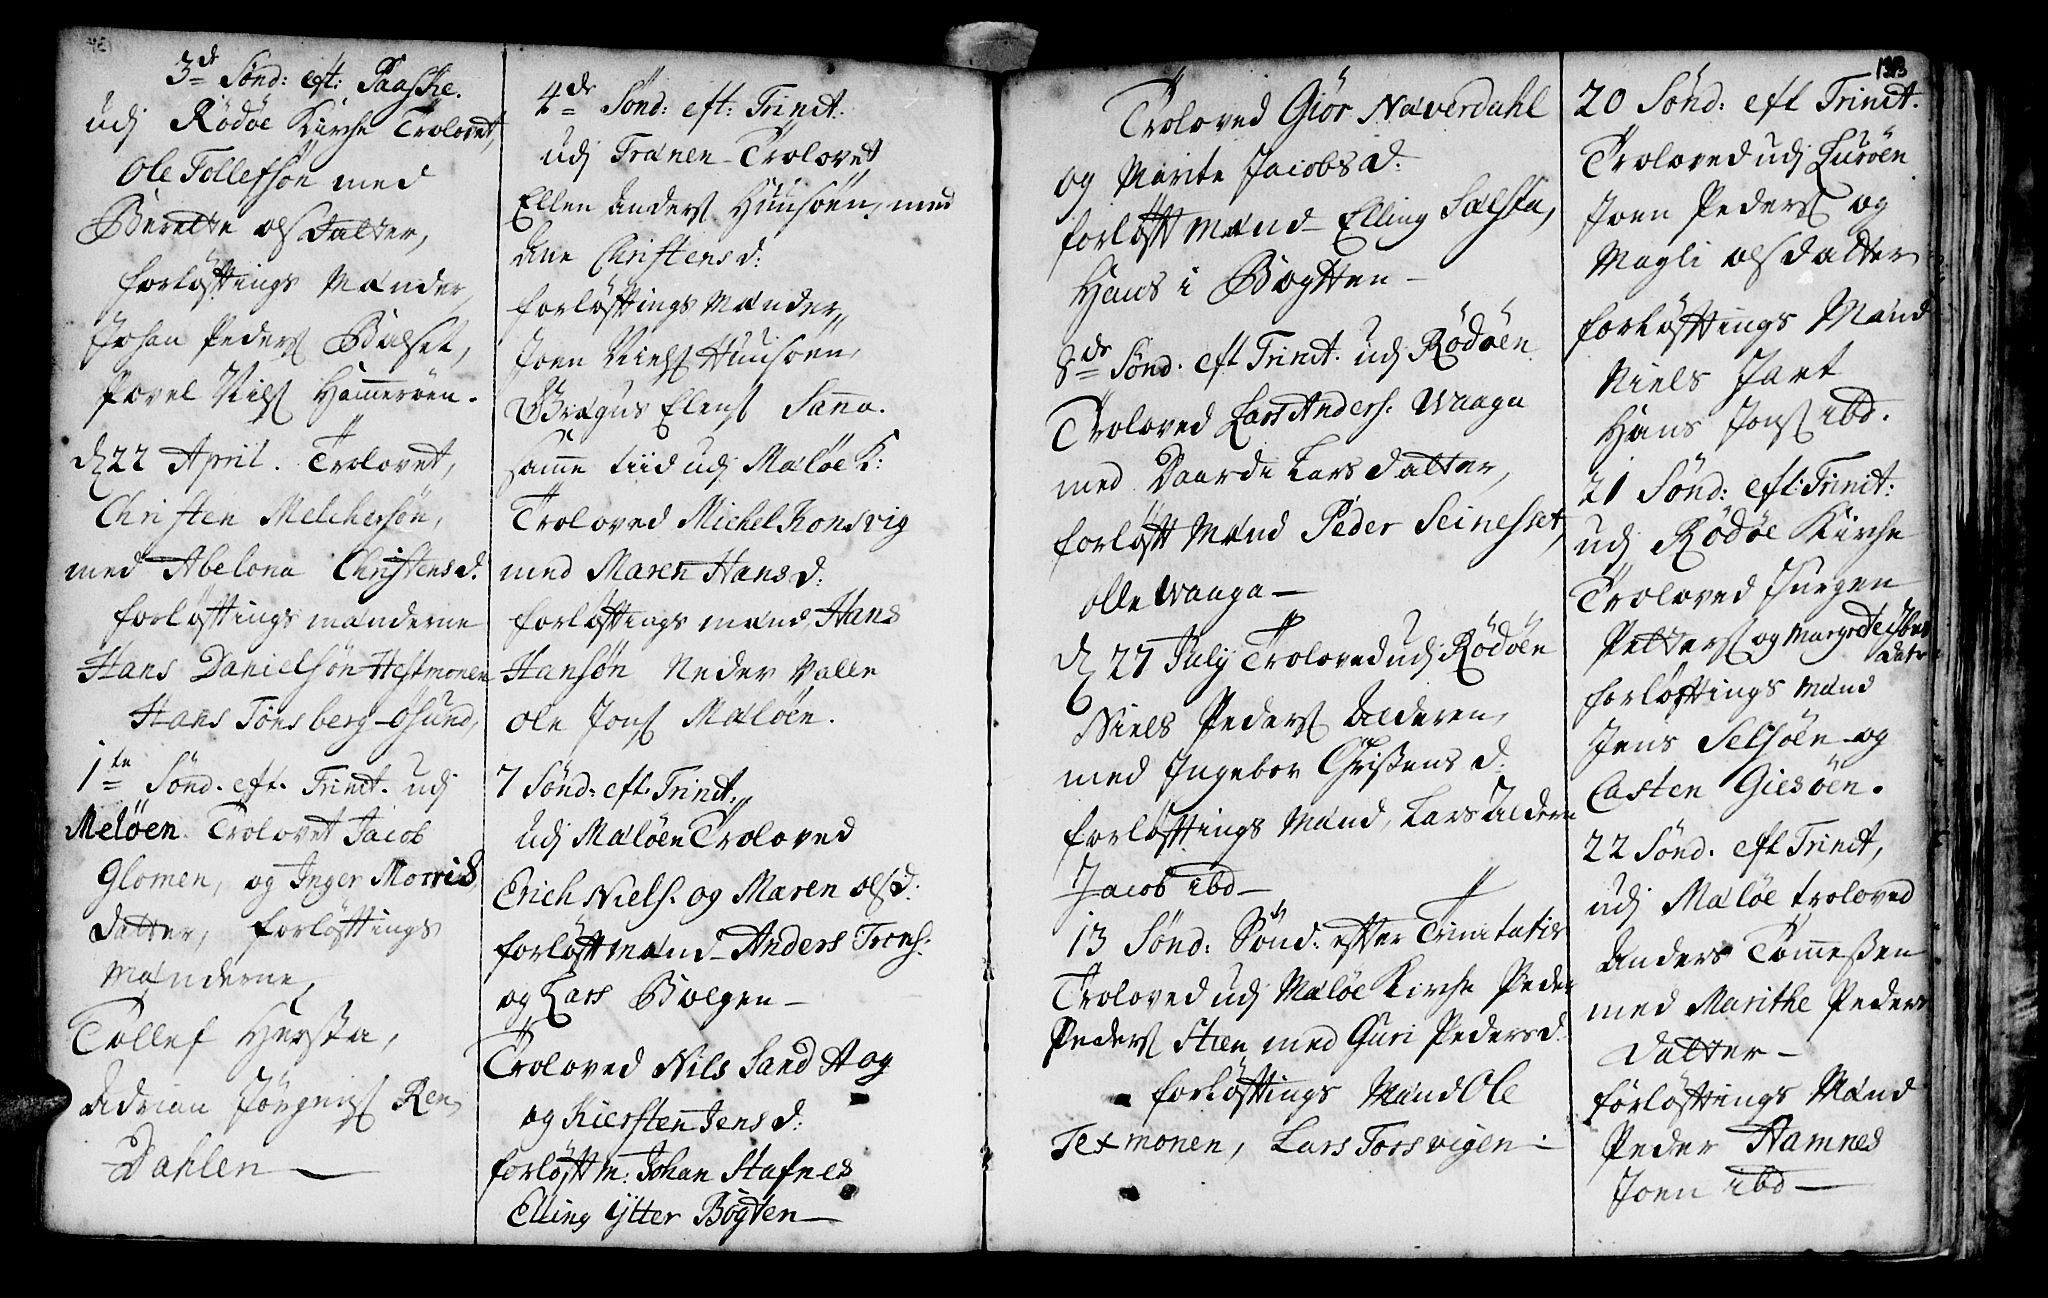 3de Sönd: eft: Paaske.
udj Rödöe Kirche Trolovet,
Ole Tollefsön med
Berette olsdatter,
forlöftings Mænder,
Johan Peders Bolset,
Povel Nils Hameröen.
d 22 April. Trolovet,
Christen Melchersön,
med Abelona Christensd.
forlöftings mænderne
Hans Danielsön Hestmonen
Hans Tönsberg Osund,
1te Sönd. eft. Trinit. udj
Melöen. Trolovet Jacob
Glomen, og Inger Morrids
datter, forlöftings
Mænderne,
Tollef Hersta,
Adrian Jörgens Ren
Dahlen
4de Sönd: eft: Trinit:
udj Trænen Trolovet
Ellen Anders Huusöen, med
Ane Christensd:
forlöftings Mænder,
Joen Niels Huusöen,
Elens Sanna.
samme tiid udj Mælöe K:
Troloved Michel Ronsvig
med Maren Hansd:
forlöftings mænd, Hans
Hansön Neder Valle
Ole Jons Mælöen.
7 Sönd: eft: Trinit:
udj Mælöen Troloved
Erich Niels. og Maren olsd:
forlöft mænd Anders Trons:
og Lars Bolgen
Troloved Nils Sand A og
og Kiersten Jensd:
forlöft m: Johan Stafnes
Elling Ytter Bögten
133
Troloved Giör Næverdahl
og Marite Jacobsd:
forlöft mænd Elling Salsta,
Hans i Bogtten
8de Sönd. eft Trinit. udj Rödöen
Troloved Lars Anders. Waaga
med Vaarde Larsdatter,
forlöft Mænd Peder Seinesset,
olle Waaga
d 27 July Troloved udj Rödöen
Niels Peders Alderen,
med Ingebor Christens d:
forlöftings Mænd, Lars Aldern
Jacob ibd
13 Sönd: Sönd: efter Trinitatis
Troloved udj Mælöe Kirche Peder
Peders Steen med Guri Pedersd.
forlöftings Mænd Ole
Texmonen, Lars Torsvigen.
20 Sönd: eft Trinit.
Troloved udj Luröen
Joen Peders og
Magli olsdatter
forlöftings Mænd
Niels Jart
Hans Jons ibd.
21 Sönd: eft: Trinit:
udj Rödöe Kirche
Troloved Jurgen
Petters og Margrete Isbr
datr
forlöftings mænd
Jens Selsöen og
Casten Giesöen.
22 Sönd. eft Trinit,
udj Mælöe troloved
Anders Tömessen
med Marithe Peders
datter
forlöftings Mænd
Peder Hamnes
Joen ibd